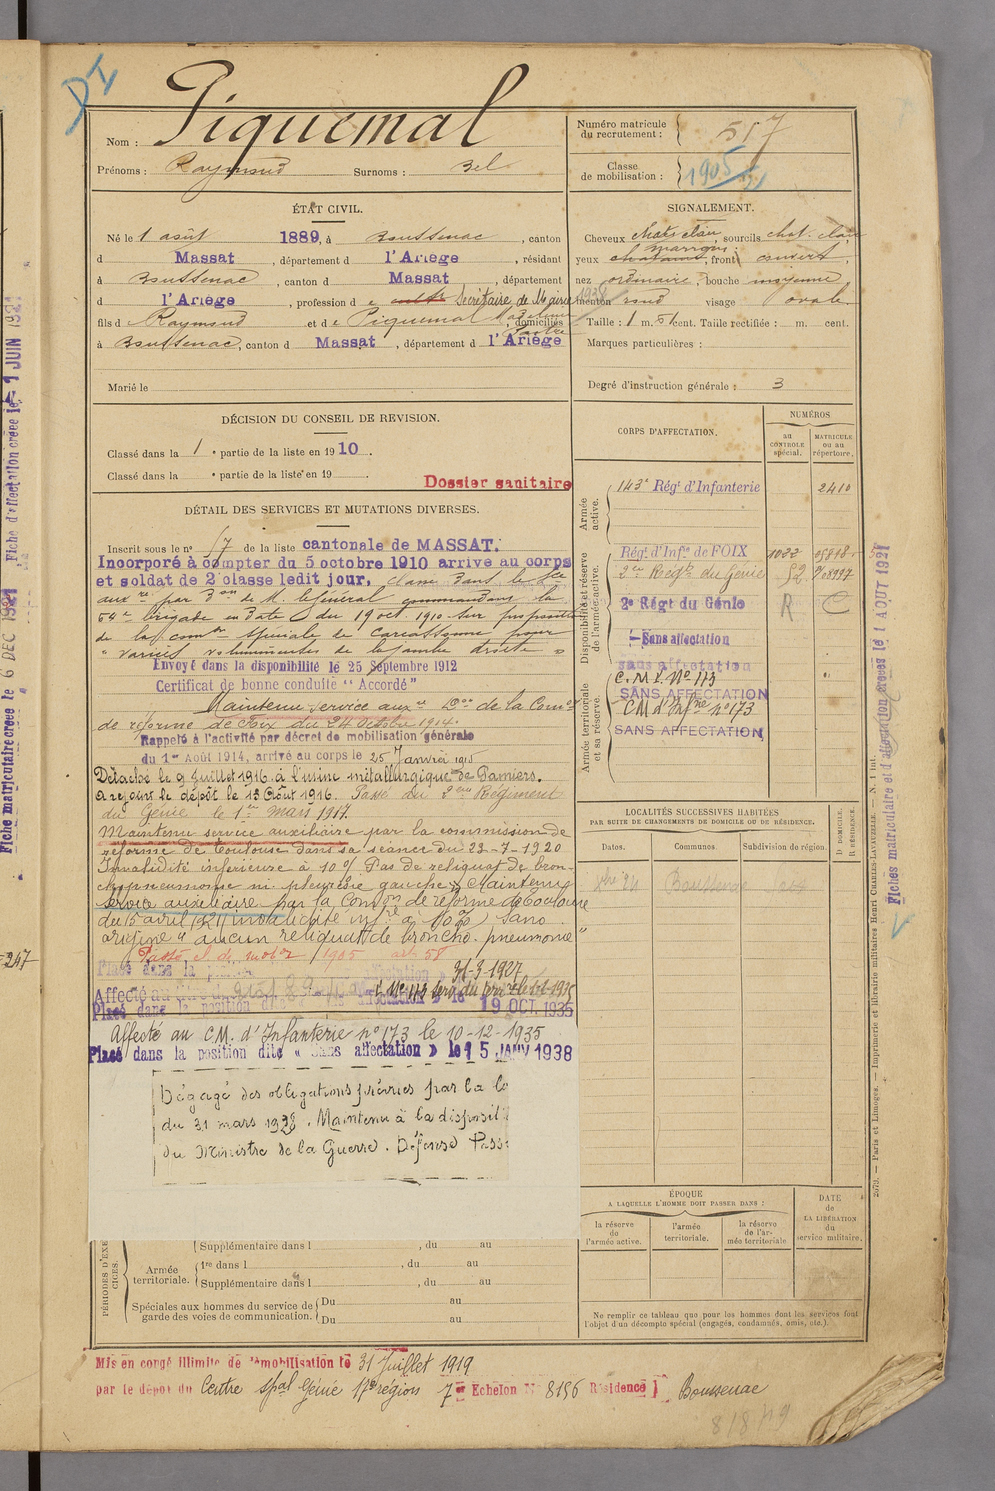 DI
Nom : Piquemal
Prénoms : Raymond Surnoms : Bel
Numéro matricule du recrutement : 517
Classe de mobilisation : 1905
ÉTAT CIVIL.
Né le 1 août 1889, à Boussenac, canton
d Massat, département d l'Ariège, résidant
à Boussenac, canton d Massat, département
d l'Ariège, profession d e Secrétaire de Mairie 1938
fils d e Raymond et d e Piquemal Madeleine, domiciliés
à Boussenac, canton d Massat, département d l'Ariège
Marié le
SIGNALEMENT.
Cheveux chat. clair, sourcils chat. clair
yeux marrons, front couvert,
nez ordinaire, bouche moyenne
menton rond visage ovale.
Taille : 1 m. 51 cent. Taille rectifiée : m. cent.
Marques particulières :
Degré d'instruction générale : 3
DÉCISION DU CONSEIL DE REVISION.
Classé dans la 1e partie de la liste en 1910.
Classé dans la e partie de la liste en 19 .
Dossier sanitaire
DÉTAIL DES SERVICES ET MUTATIONS DIVERSES.
Inscrit sous le no 57 de la liste cantonale de MASSAT.
Incorporé à compter du 5 octobre 1910 arrivé au corps
et soldat de 2e classe ledit jour, classé dans le sce
auxre par don de M. le Général commandant la
64e brigade en date du 19 oct. 1910 sur proposition
de la comon spéciale de Carcassonne pour
"varices volumineuses de la jambe droite"
Envoyé dans la disponibilité le 25 Septembre 1912
Certificat de bonne conduite "Accordé"
Maintenu service auxre Don de la Comon
de réforme de Foix du 24 Octobre 1914.
Rappelé à l'activité par décret de mobilisation générale
du 1er Août 1914, arrivé au corps le 25 Janvier 1915
Détaché le 9 Juillet 1916 à l'usine métallurgique de Pamiers.
A rejoint le dépôt le 13 Août 1916. Passé du 2eme Régiment
du Génie le 1er Mars 1917.
Maintenu service auxiliaire par la commission de
réforme de Toulouse dans sa séance du 23-7-1920
Invalidité inférieure à 10% Pas de reliquat de bron-
chopneumonie ni pleurésie gauche. Maintenu
service auxiliaire par la Comon de réforme de Toulouse
du 15 avril 1921 invalidité infre à 10% sans
origine "aucun reliquat de broncho-pneumonie"
Passé cl. de mobon 1905 art 58
Placé dans la
31-3-1927
Affecté au
Placé dans la position dite « sans affectation » le 19 OCT. 1935
Affecté au C.M. d'Infanterie no 173 le 10-12-1935
Placé dans la position dite « Sans affectation » le 15 JANV 1938
Dégagé des obligations prévues par la lo
du 31 mars 1928. Maintenu à la disposit
du Ministre de la Guerre. Défense Pass
CORPS D'AFFECTATION.
NUMÉROS
au CONTROLE spécial.
MATRICULE ou au répertoire.
Armée active.
143e Régt d'Infanterie 2410
Disponibilité et réserve de l'armée active.
Régt d'Infie de FOIX 1022
2eme Régt du Génie 52
2e Régt du Génie R
Sans affectation
sans affectation
Armée territoriale et sa réserve.
C.M.I. No 173
SANS AFFECTATION
CM d'Infrie no 173
SANS AFFECTATION
LOCALITÉS SUCCESSIVES HABITÉES
PAR SUITE DE CHANGEMENTS DE DOMICILE OU DE RÉSIDENCE.
Dates. Communes. Subdivision de région. D DOMICILE. R RÉSIDENCE.
Boussenac
ÉPOQUE
A LAQUELLE L'HOMME DOIT PASSER DANS :
la réserve de l'armée active.
l'armée territoriale.
la réserve de l'armée territoriale
DATE de LA LIBÉRATION du service militaire.
Ne remplir ce tableau que pour les hommes dont les services font
l'objet d'un décompte spécial (engagés, condamnés, omis, etc.).
PÉRIODES D'EXERCICES.
Supplémentaire dans l , du au
Armée territoriale.
1re dans l , du au
Supplémentaire dans l , du au
Spéciales aux hommes du service de garde des voies de communication.
Du au
Du au
Mis en congé illimité de démobilisation le 31 Juillet 1919
par le dépôt du Centre Spal Génie 17e région 7e Echelon No 8196 Résidence } Boussenac
Fiche matriculaire créée le 6 DEC 1921
Fiche d'affectation créée le 1 JUIN 1921
247
Fiches matriculaire et d'affectation créées le 1 AOUT 1921
2079. — Paris et Limoges. — Imprimerie et librairie militaires Henri CHARLES-LAVAUZELLE. — N. 1 int.